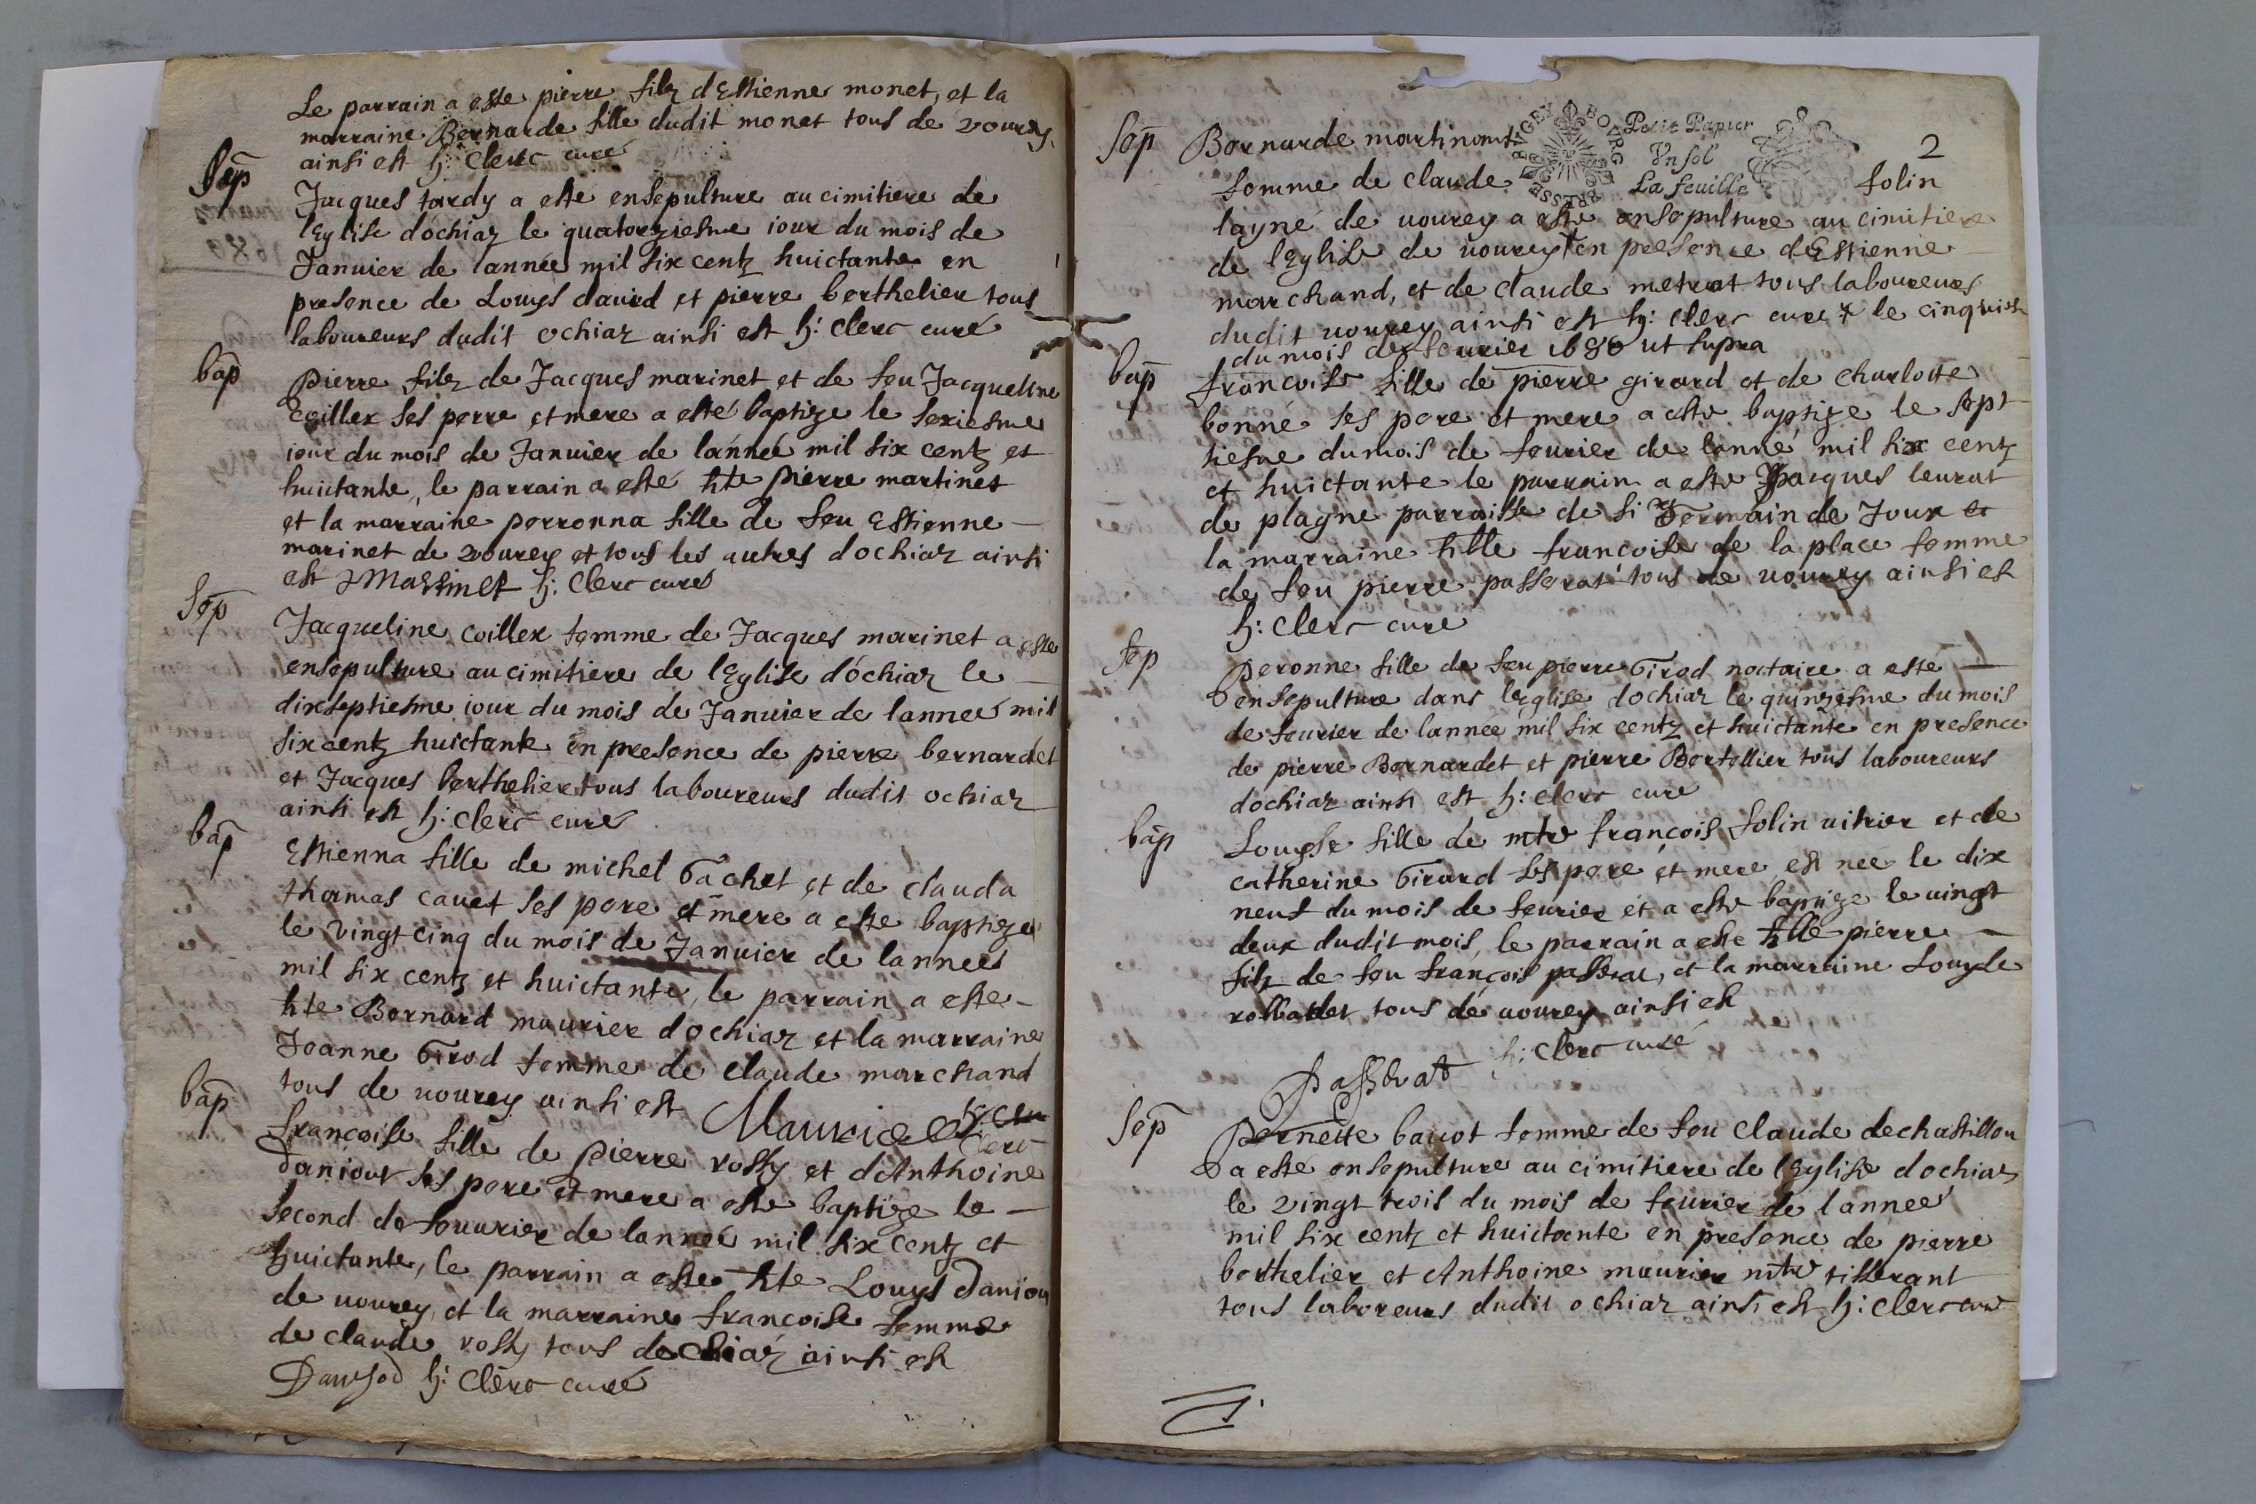 Le parrain a este pierre filz dEstienne monet, et la
marraine Bernarde fille dudit monet tous de vourey,
ainsi est h: Clerc curé
Sep
Jacques tardy a esté ensepulture au cimitiere de
lEglise dóchiaz le quatorziesme iour du mois de
Januier de lannee mil six centz huictante en
presence de Louys dauid et pierre berthelier tous
laboureurs dudit ochiaz ainsi est h: Clerc curé
bap
pierre filz de Jacques marinet et de feu Jacqueline
Coillex ses perre et mere a esté baptize le sexiesme
iour du mois de Januier de lánneé mil six centz et
huictante, le parrain a esté hte pierre martinet
et la marraine perronna fille de feu Estienne
marinet de vourey et tous les autres dochiaz ainsi
est Martinet h: Clerc curé
Sep
Jacqueline coillex femme de Jacques marinet a este
ensepulture au cimitiere de lEglise dóchiaz le
dixseptiesme iour du mois de Januier de lanneé mil
six centz huictante en presence de pierre bernardet
et Jacques berthelier tous laboureurs dudit ochiaz
ainsi est h: clerc curé
bap
Estienna fille de michel Gachet et de clauda
thomas cauet ses pere et mere a este baptize
le vingt cinq du mois de Januier de lanneé
mil six centz et huictante, le parrain a este
hte Bernard maurier dochiaz et la marraine
Jeanne Girod femme de claude marchand
tous de uourey ainsi est Maurice h: Clerc
bap
françoise fille de pierre rossy et dAnthoine
daniout ses pere et mere a este baptize le
second de feuurier de lanneé mil six centz et
huictante, le parrain a este hte Louys daniou
de uourey, et la marraine françoise femme
de claude rossy tous dochiaz ainsi est
h: Clerc curé
2
BOURG BRESSE BUGEY
Petit Papier
Vn sol
La feuille
Sep
Bernarde martinand
femme de claude folin
layné de uourey a este ensepulture au cimitiere
de lEglise de uourey en presence dEstienne
marchand, et de claude metrat tous laboureurs
dudit uourey ainsi est h: clerc cure * le cinquies
du mois de feurier 1680 ut supra
bap
françoise fille de pierre girard et de charlotte
bonné ses pere et mere a este baptize le sept
tiesme du mois de feurier de lanné mil six centz
et huictante le parrain a este Jacques leurat
de plagne parroisse de St Germain de Joux et
la marraine françoise de la place femme
de feu pierre passerat tous de uourey ainsi est
h: Clerc cure
Sep
peronne fille de feu pierre Girod noctaire a esté
ensepulture dans lEglise dochiaz le quinziesme du mois
de feurier de lannee mil six centz et huictante en presence
de pierre Bernardet et pierre Bertellier tous laboureurs
dochiaz ainsi est h: clerc curé
bap
Louyse fille de mtre françois folin uitrier et de
catherine Girard ses pere et mere est neé le dix
neuf du mois de feurier et a este baptize le uingt
deux dudit mois, le parrain a este pierre
filz de feu françois passerat, et la marraine Louyse
tous de uourey ainsi est
h: Clerc curé
Passerat
Sep
Pernette bauot femme de feu claude dechastillon
a esté ensepulture au cimitiere de lEglise dochiaz
le vingt trois du mois de feurier de lanneé
mil six centz et huictante en presence de pierre
berthelier et Anthoine maurier mtre tisserant
tous laboreurs dudit ochiaz ainsi est h: Clerc cure